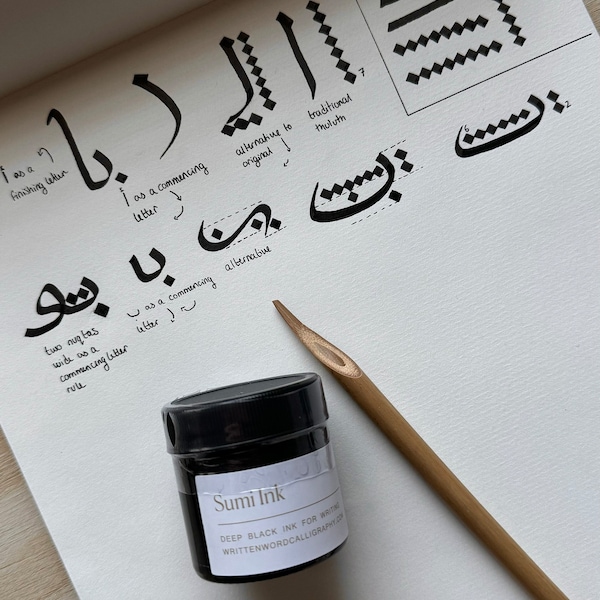 با
ا
ا
ا
7
as a
finishing letter
أ as a commencing
letter
alternative to
original
traditional
thuluth
ب
2
ب
ب
alternative
ب
ب as a commencing
letter
بو
two nuqtas
wide as a
commencing letter
rule
Sumi Ink
DEEP BLACK INK FOR WRITING
WRITTENWORDCALLIGRAPHY.COM